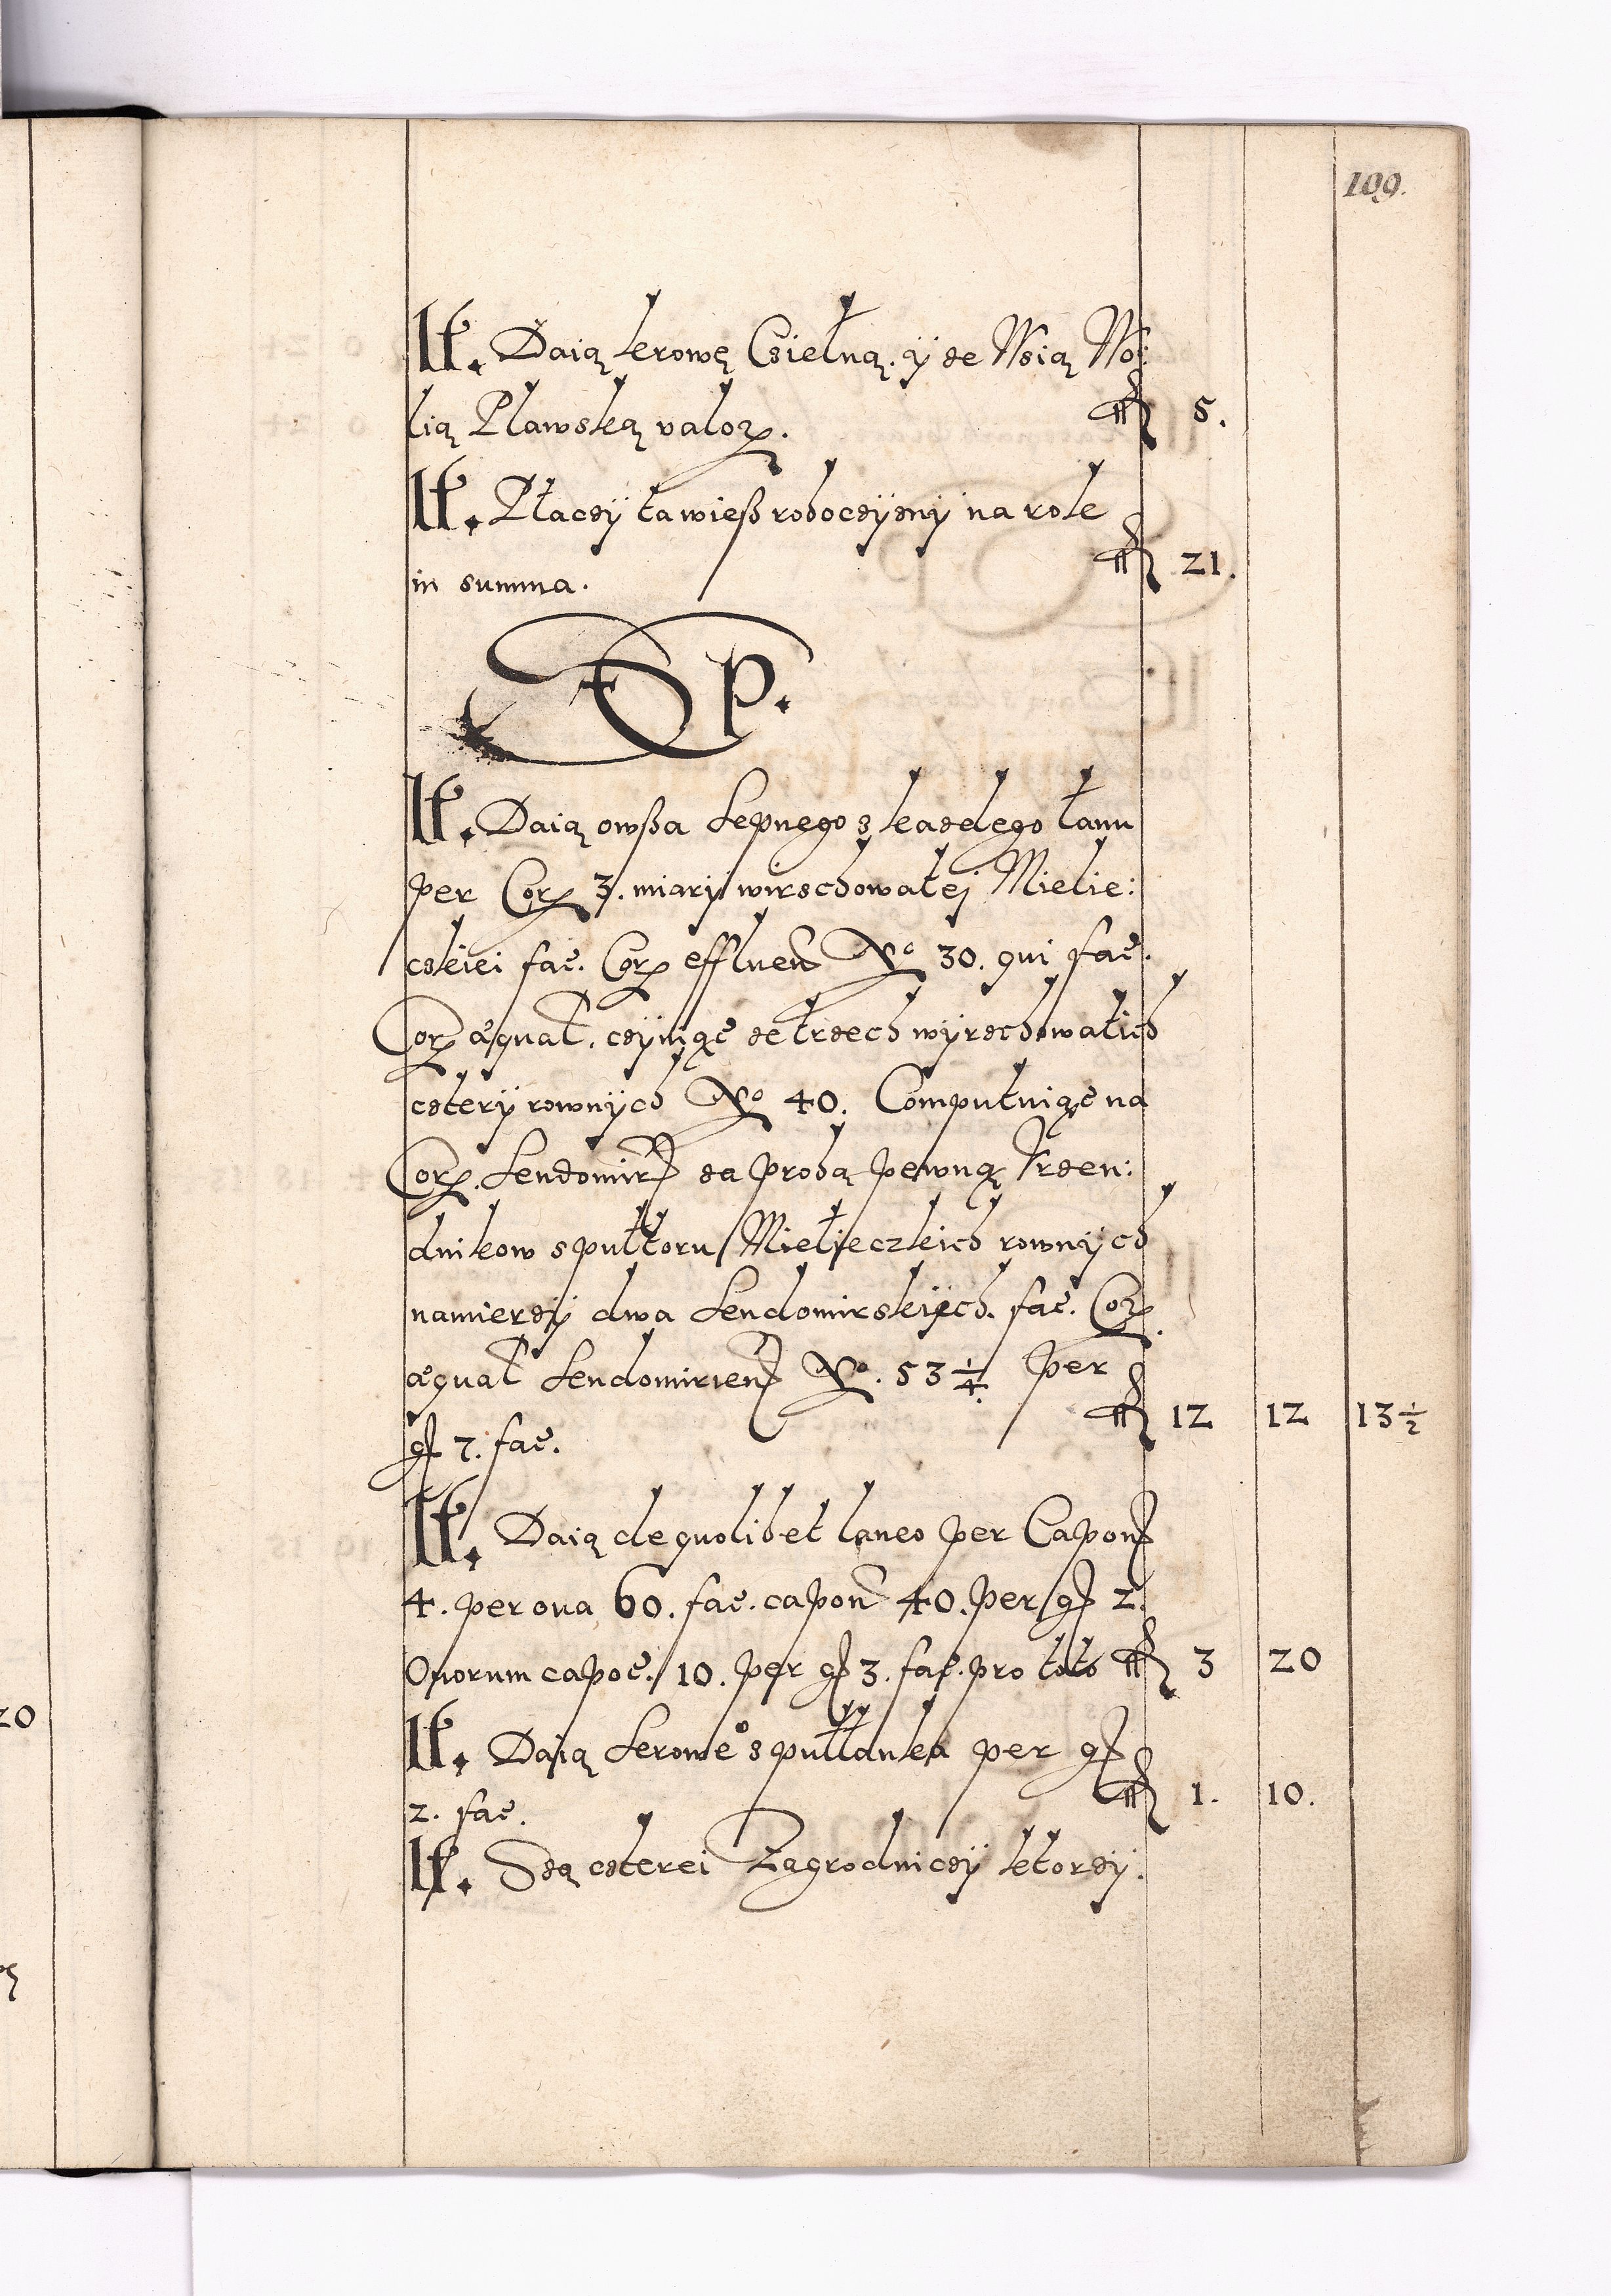 109.
It. Daią krowę Cielną. y ze Wsią Wo:
lią Plawską valor. fl 5.
It. Płaczy ta wieß robocyzny na role
in summa. fl 21.
P.
It. Daią owßa Sepnego z kazdego łanu
per Cor. 3. miary wirzchowatej Mielie:
czkiei fac. Cor. effluen No 30. qui fac.
Cor. æqual. czyniąc ze trzech wyrzchowatich
cztery rownych No 40. Computuiąc na
Cor. Sendomir za probą pewną Vrzen:
dnikow z pułtoru Mielieczkich rownych
namierzy dwa Sendomirskiych. fac. Cor.
æqual Sendomirien No. 53 1/4 per
gr 7. fac. fl 12 12 13 1/2
It. Daią de quolibet laneo per Capon
4. per oua 60. fac. capon 40. per gr 2.
Ouorum capoe. 10. per gr 3. fac. pro toto fl 3 20
It. Daią Serowe z pułłanka per gr
2. fac. fl 1. 10.
It. Są czterei Zagrodniczy ktorzy.
20